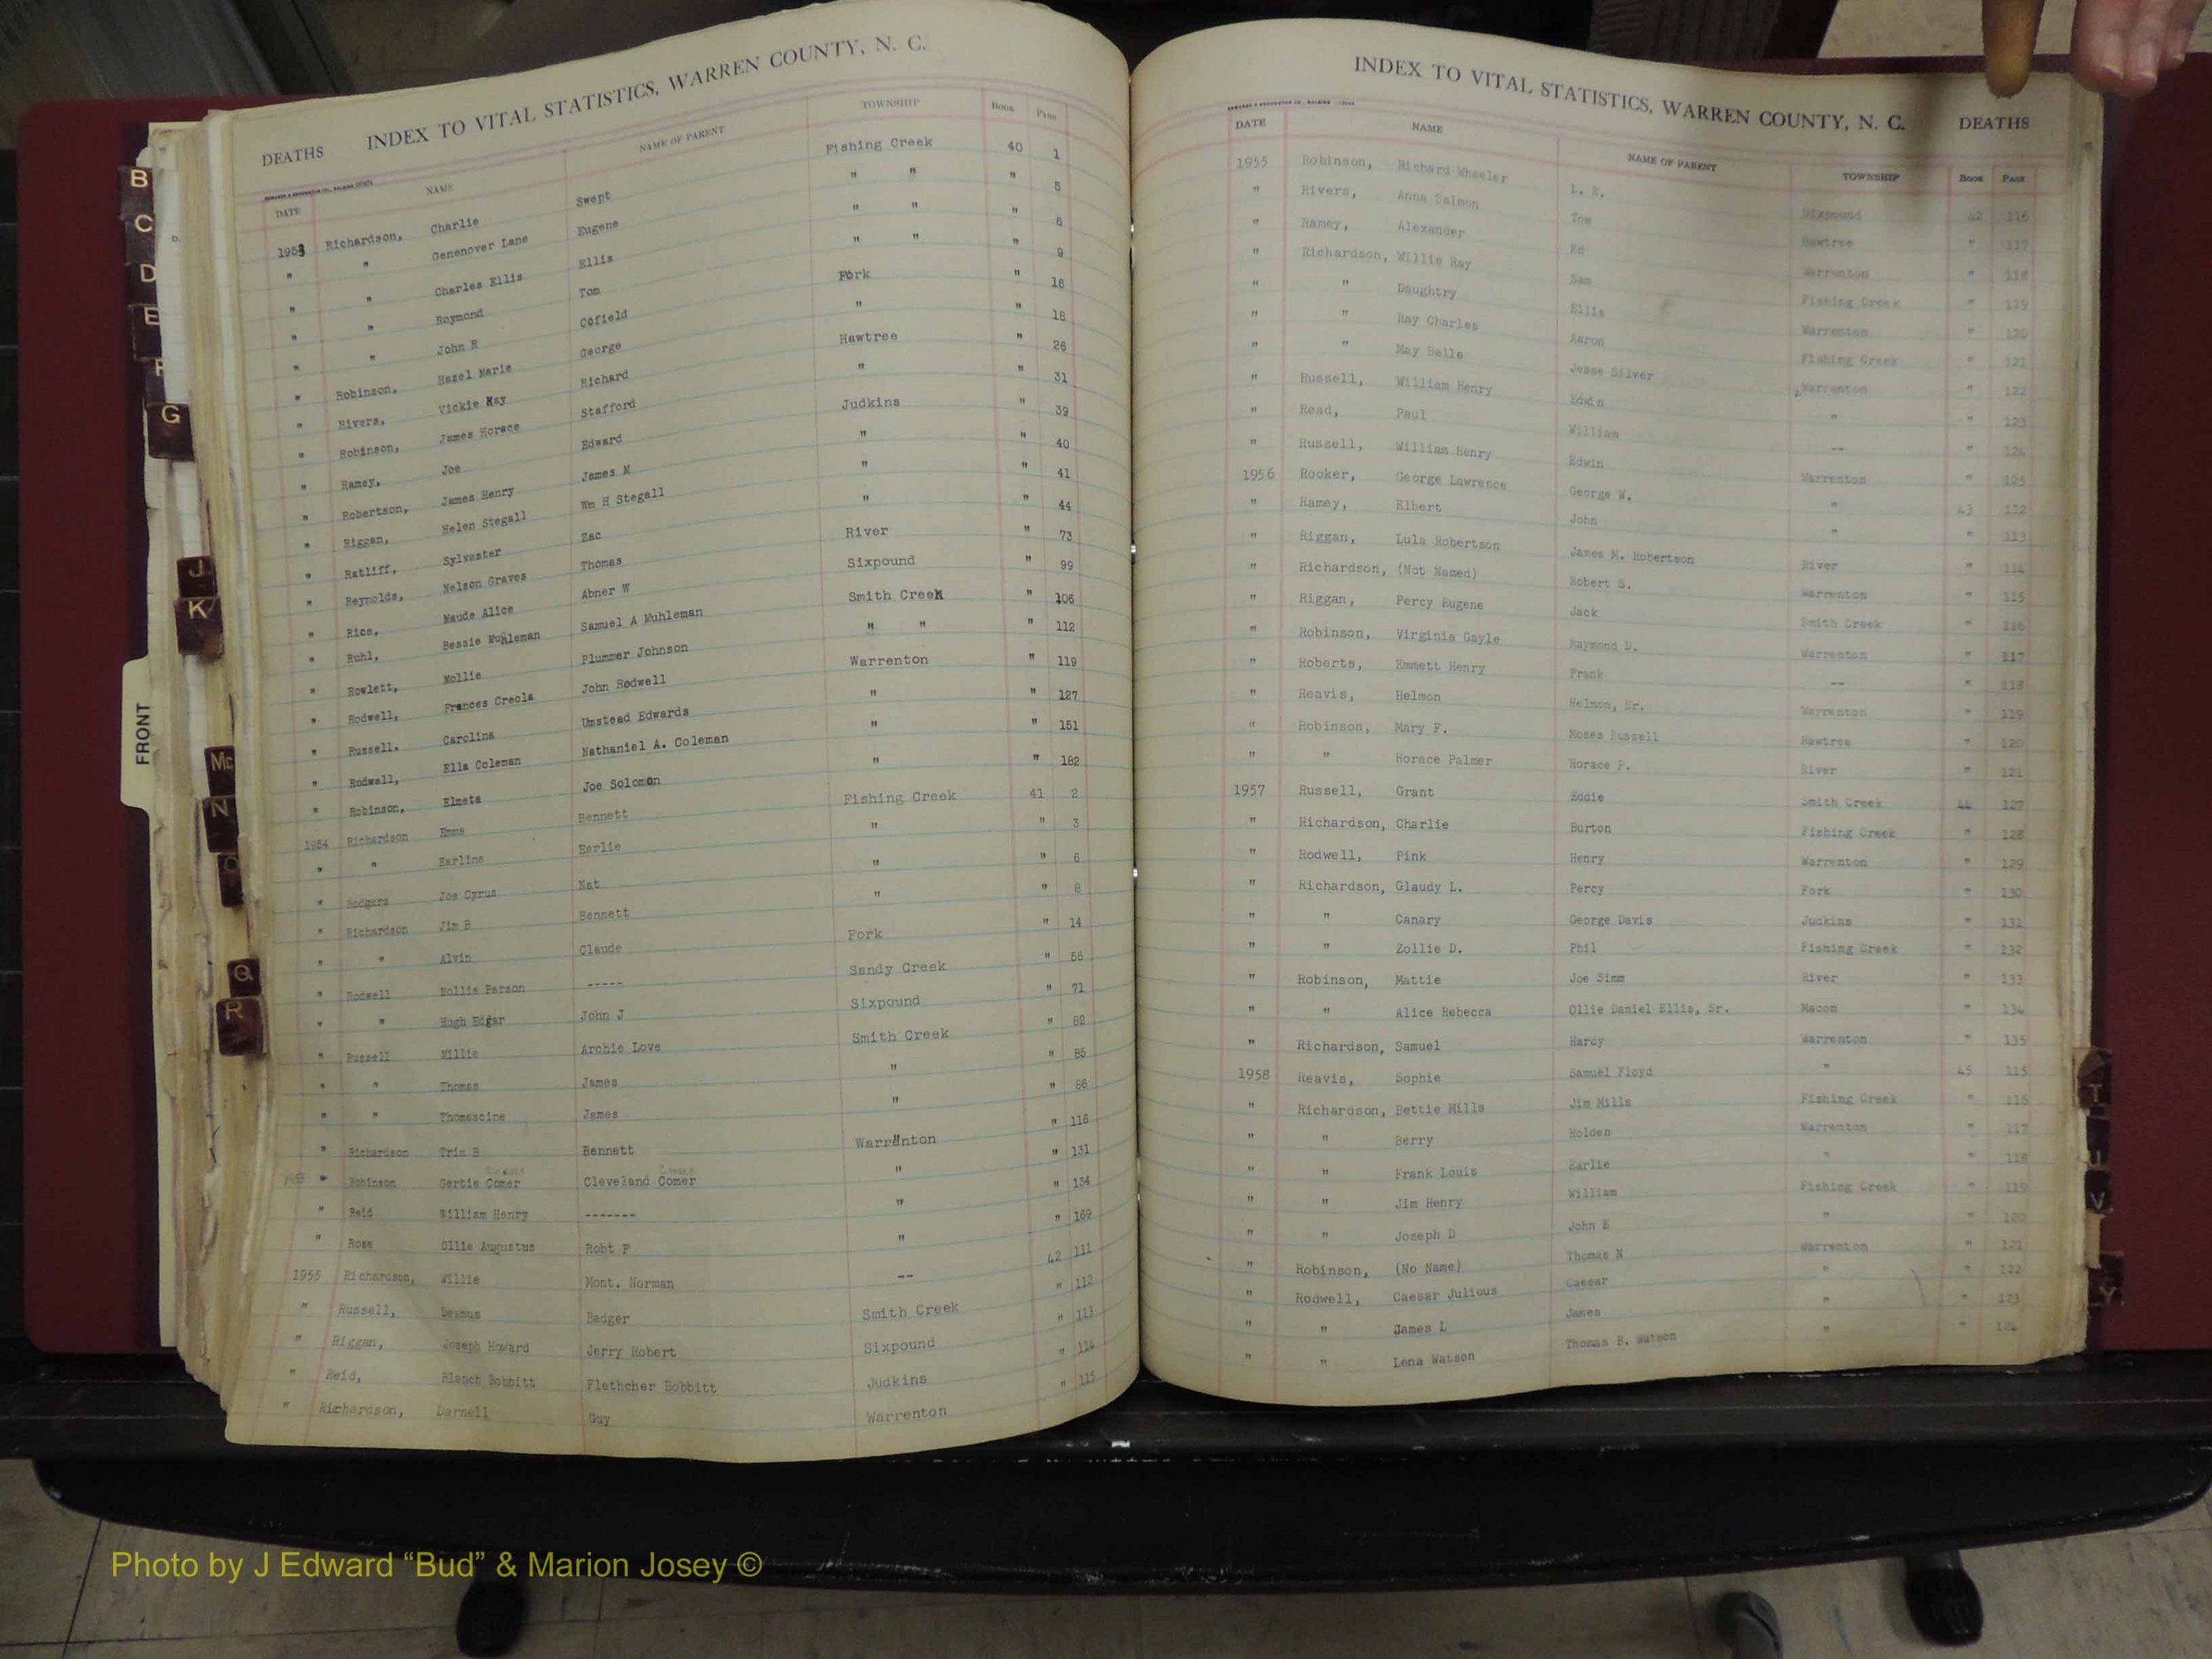 INDEX TO VITAL STATISTICS, WARREN COUNTY, N. C.
DEATHS
DATE NAME NAME OF PARENT TOWNSHIP BOOK PAGE
1953 Richardson, Charlie Swept Fishing Creek 40 1
" " Genenover Lane Eugene " " " 5
" " Charles Ellis Ellis " " " 6
" " Roymond Tom " " " 9
" " John R Cofield Fork " 16
" Robinson, Hazel Marie George " " 18
" Rivers, Vickie Kay Richard Hawtree " 26
" Robinson, James Horace Stafford " " 31
" Ramey, Joe Edward Judkins " 39
" Robertson, James Henry James M " " 40
" Riggan, Helen Stegall Wm H Stegall " " 41
" Ratliff, Sylvester Zac " " 44
" Reynolds, Nelson Graves Thomas River " 73
" Rice, Maude Alice Abner W Sixpound " 99
" Ruhl, Bessie Muhleman Samuel A Muhleman Smith Creek " 106
" Rowlett, Mollie Plummer Johnson " " " 112
" Rodwell, Frances Creola John Rodwell Warrenton " 119
" Russell. Carolina Umstead Edwards " " 127
" Rodwell, Ella Coleman Nathaniel A. Coleman " " 151
" Robinson, Elmeta Joe Solomon " " 182
1954 Richardson Emma Bennett Fishing Creek 41 2
" " Earline Earlie " " 3
" Rodgers Joe Cyrus Nat " " 6
" Richardson Jim B Bennett " " 8
" " Alvin Claude Fork " 14
" Rodwell Mollie Person ----- Sandy Creek " 56
" " Hugh Edgar John J Sixpound " 71
" Russell Millie Archie Love Smith Creek " 82
" " Thomas James " " 85
" " Thomascine James " " 86
" Richardson Trim B Bennett Warrenton " 116
" Robinson Gertie Comer Cleveland Comer " " 131
" Reid William Henry ------- " " 134
" Rose Ollie Augustus Robt P " " 169
1955 Richardson, Willie Mont. Norman -- 42 111
" Russell, Desmus Badger Smith Creek " 112
" Riggan, Joseph Howard Jerry Robert Sixpound " 113
" Reid, Blanch Bobbitt Flethcher Bobbitt Judkins " 114
" Richardson, Darnell Guy Warrenton " 115
INDEX TO VITAL STATISTICS, WARREN COUNTY, N. C. DEATHS
DATE NAME NAME OF PARENT TOWNSHIP BOOK PAGE
1955 Robinson, Richard Wheeler L. R. Sixpound 42 116
" Rivers, Anna Salmon Tom Hawtree " 117
" Ramey, Alexander Ed Warrenton " 118
" Richardson, Willie Ray Sam Fishing Creek " 119
" " Daughtry Ellis Warrenton " 120
" " Ray Charles Aaron Fishing Creek " 121
" " May Belle Jesse Silver Warrenton " 122
" Russell, William Henry Edwin " " 123
" Read, Paul William -- " 124
" Russell, William Henry Edwin Warrenton " 125
1956 Rooker, George Lawrence George W. " 43 112
" Ramey, Elbert John " " 113
" Riggan, Lula Robertson James M. Robertson River " 114
" Richardson, (Not Named) Robert S. Warrenton " 115
" Riggan, Percy Eugene Jack Smith Creek " 116
" Robinson, Virginia Gayle Raymond D. Warrenton " 117
" Roberts, Emmett Henry Frank -- " 118
" Reavis, Helmon Helmon, Sr. Warrenton " 119
" Robinson, Mary F. Moses Russell Hawtree " 120
" " Horace Palmer Horace P. River " 121
1957 Russell, Grant Eddie Smith Creek 44 127
" Richardson, Charlie Burton Fishing Creek " 128
" Rodwell, Pink Henry Warrenton " 129
" Richardson, Glaudy L. Percy Fork " 130
" " Canary George Davis Judkins " 131
" " Zollie D. Phil Fishing Creek " 132
" Robinson, Mattie Joe Simm River " 133
" " Alice Rebecca Ollie Daniel Ellis, Sr. Macon " 134
" Richardson, Samuel Hardy Warrenton " 135
1958 Reavis, Sophie Samuel Floyd " 45 115
" Richardson, Bettie Mills Jim Mills Fishing Creek " 116
" " Berry Holden Warrenton " 117
" " Frank Louis Earlie " " 118
" " Jim Henry William Fishing Creek " 119
" " Joseph D John E " " 120
" Robinson, (No Name) Thomas N Warrenton " 121
" Rodwell, Caesar Julious Caesar " " 122
" " James L James " " 123
" " Lena Watson Thomas B. Watson " " 124
B
C
D
E
F
G
J
K
FRONT
Mc
N
O
Q
R
T
U
V
Y
Photo by J Edward “Bud” & Marion Josey ©